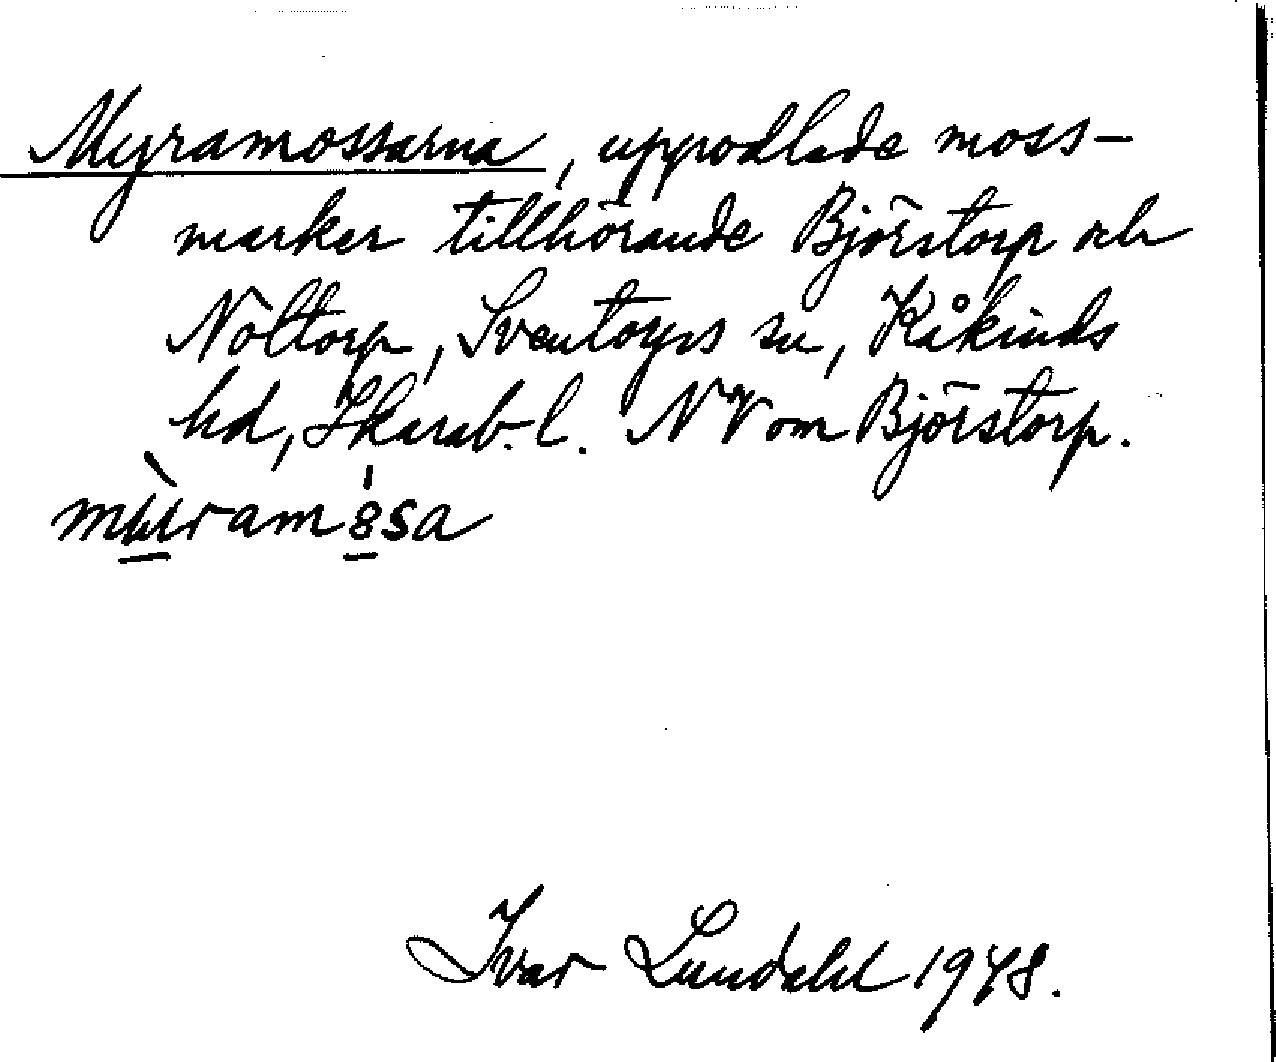 Myramossarna, uppodlade moss-
marker tillhörande Björstorp och
Noltorp, Sventorps sn, Kåkinds
hd, Skarab. l. NV om Björstorp.
Ivar Lundahl 1948.